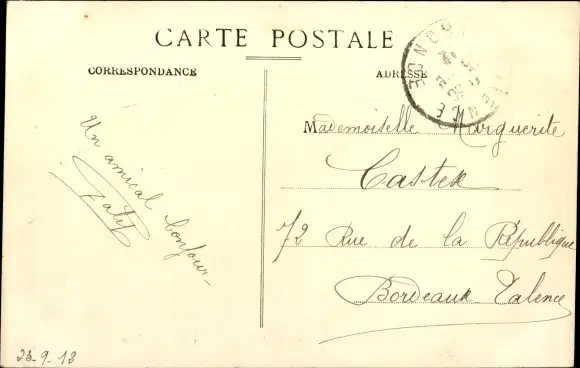 CARTE POSTALE
CORRESPONDANCE
ADRESSE
Un amical bonjour -
Mademoiselle Marguerite
Castex
72 Rue de la République
Bordeaux Talence
23-9-12